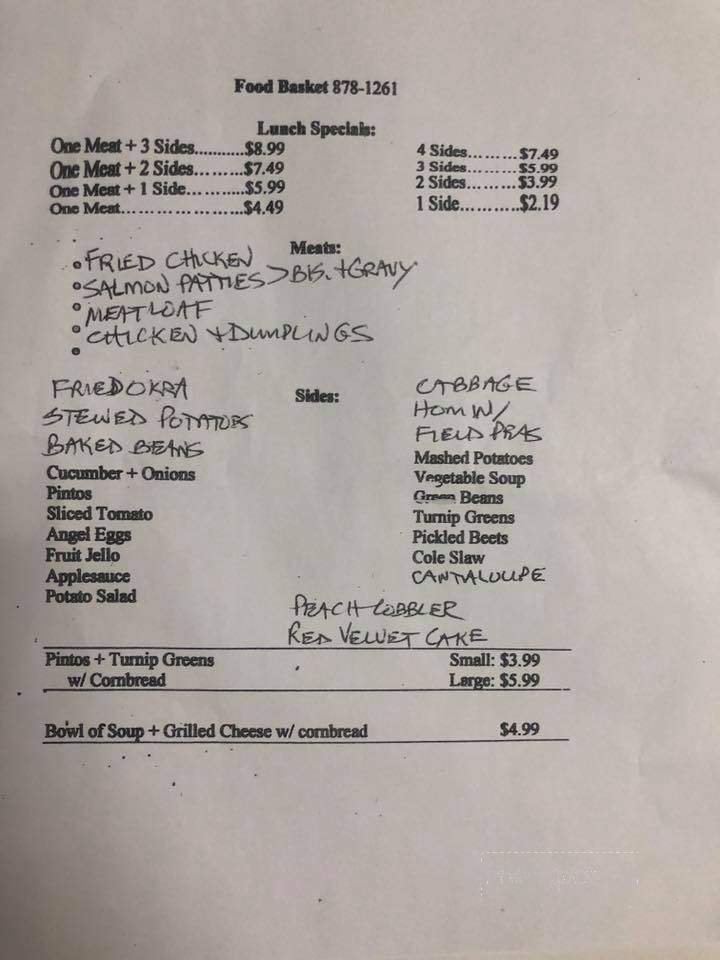 Food Basket 878-1261
Lunch Specials:
One Meat + 3 Sides..........$8.99
One Meat + 2 Sides.........$7.49
One Meat + 1 Side...........$5.99
One Meat........................$4.49
4 Sides.........$7.49
3 Sides.........$5.99
2 Sides.........$3.99
1 Side...........$2.19
Meats:
• FRIED CHICKEN
• SALMON PATTIES > BIS. + GRAVY
• MEATLOAF
• CHICKEN + DUMPLINGS
•
Sides:
FRIED OKRA
STEWED POTATOES
BAKED BEANS
Cucumber + Onions
Pintos
Sliced Tomato
Angel Eggs
Fruit Jello
Applesauce
Potato Salad
CABBAGE
HOM W/
FIELD PEAS
Mashed Potatoes
Vegetable Soup
Green Beans
Turnip Greens
Pickled Beets
Cole Slaw
CANTALOUPE
PEACH COBBLER
RED VELVET CAKE
Pintos + Turnip Greens Small: $3.99
w/ Cornbread Large: $5.99
Bowl of Soup + Grilled Cheese w/ cornbread $4.99